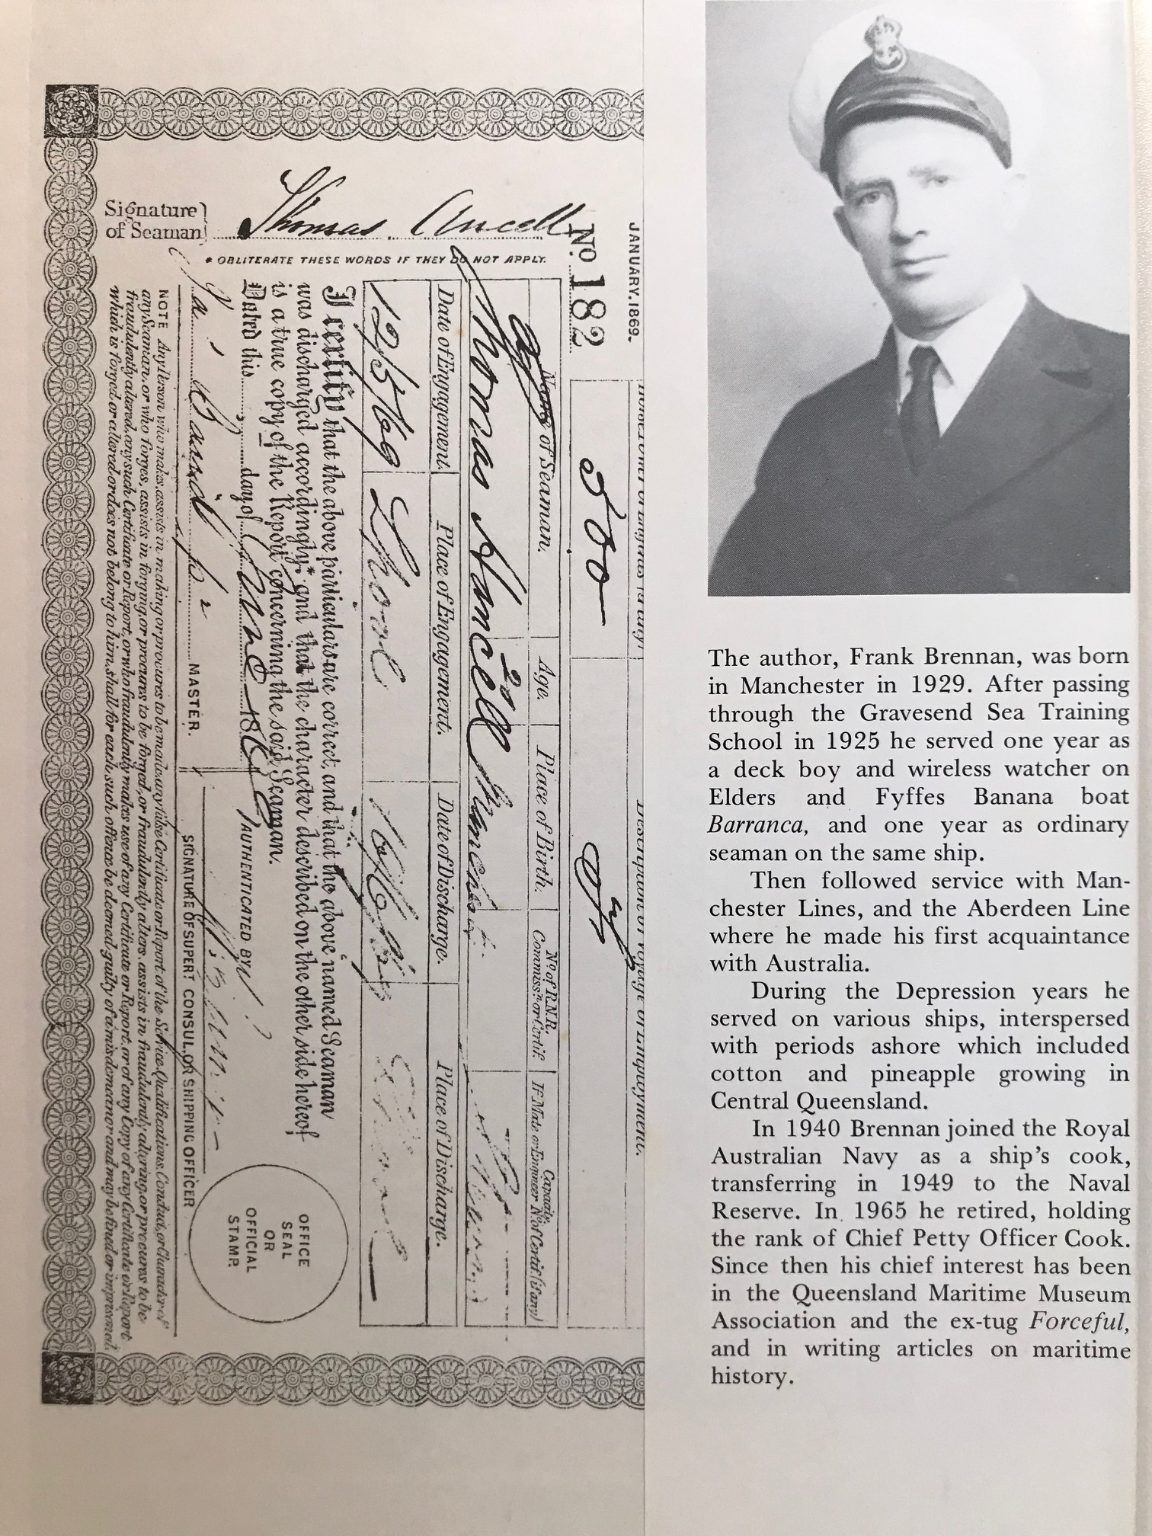 Signature
of Seaman
Thomas Ancell
* OBLITERATE THESE WORDS IF THEY DO NOT APPLY.
JANUARY, 1869.
No. 182
500
Name of Seaman.
Age.
Place of Birth.
No. of R.N.R. Commissn. or Certif.
Capacity.
If Mate or Engineer No. of Certif (if any)
Thomas Ancell
Date of Engagement.
Place of Engagement.
Date of Discharge.
Place of Discharge.
12/5/69
I certify that the above particulars are correct, and that the above named Seaman
was discharged accordingly,* and that the character described on the other side hereof
is a true copy of the Report concerning the said Seaman.
Dated this day of June 186
AUTHENTICATED BY
MASTER.
SIGNATURE OF SUPERT CONSUL, OR SHIPPING OFFICER
OFFICE
SEAL
OR
OFFICIAL
STAMP.
NOTE Any Person who makes, assists in making or procures to be made any false Certificate or Report of the Service Qualifications, Conduct, or Character of
any Seaman, or who forges, assists in forging or procures to be forged, or fraudulently alters, assists in fraudulently altering or procures to be
fraudulently altered, any such Certificate or Report, or who fraudulently makes use of any Certificate or Report, or of any Copy of any Certificate or Report
which is forged or altered or does not belong to him, shall for each such offence be deemed guilty of a misdemeanor and may be fined or imprisoned.
The author, Frank Brennan, was born
in Manchester in 1929. After passing
through the Gravesend Sea Training
School in 1925 he served one year as
a deck boy and wireless watcher on
Elders and Fyffes Banana boat
Barranca, and one year as ordinary
seaman on the same ship.
Then followed service with Man-
chester Lines, and the Aberdeen Line
where he made his first acquaintance
with Australia.
During the Depression years he
served on various ships, interspersed
with periods ashore which included
cotton and pineapple growing in
Central Queensland.
In 1940 Brennan joined the Royal
Australian Navy as a ship's cook,
transferring in 1949 to the Naval
Reserve. In 1965 he retired, holding
the rank of Chief Petty Officer Cook.
Since then his chief interest has been
in the Queensland Maritime Museum
Association and the ex-tug Forceful,
and in writing articles on maritime
history.